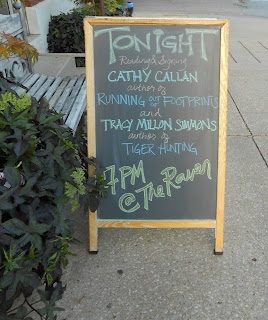 TONIGHT
Reading & Signing
CATHY CALLAN
author of
RUNNING OUT OF FOOTPRINTS
and
TRACY MILLON SIMMONS
author of
TIGER HUNTING
7PM
@ The Raven